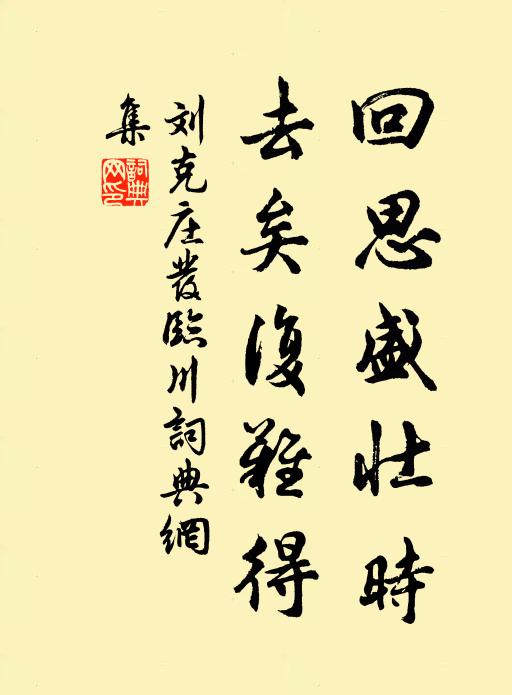 回思盛壮時
去矣復難得
刘克庄發臨川詞典網
集
詞典网印